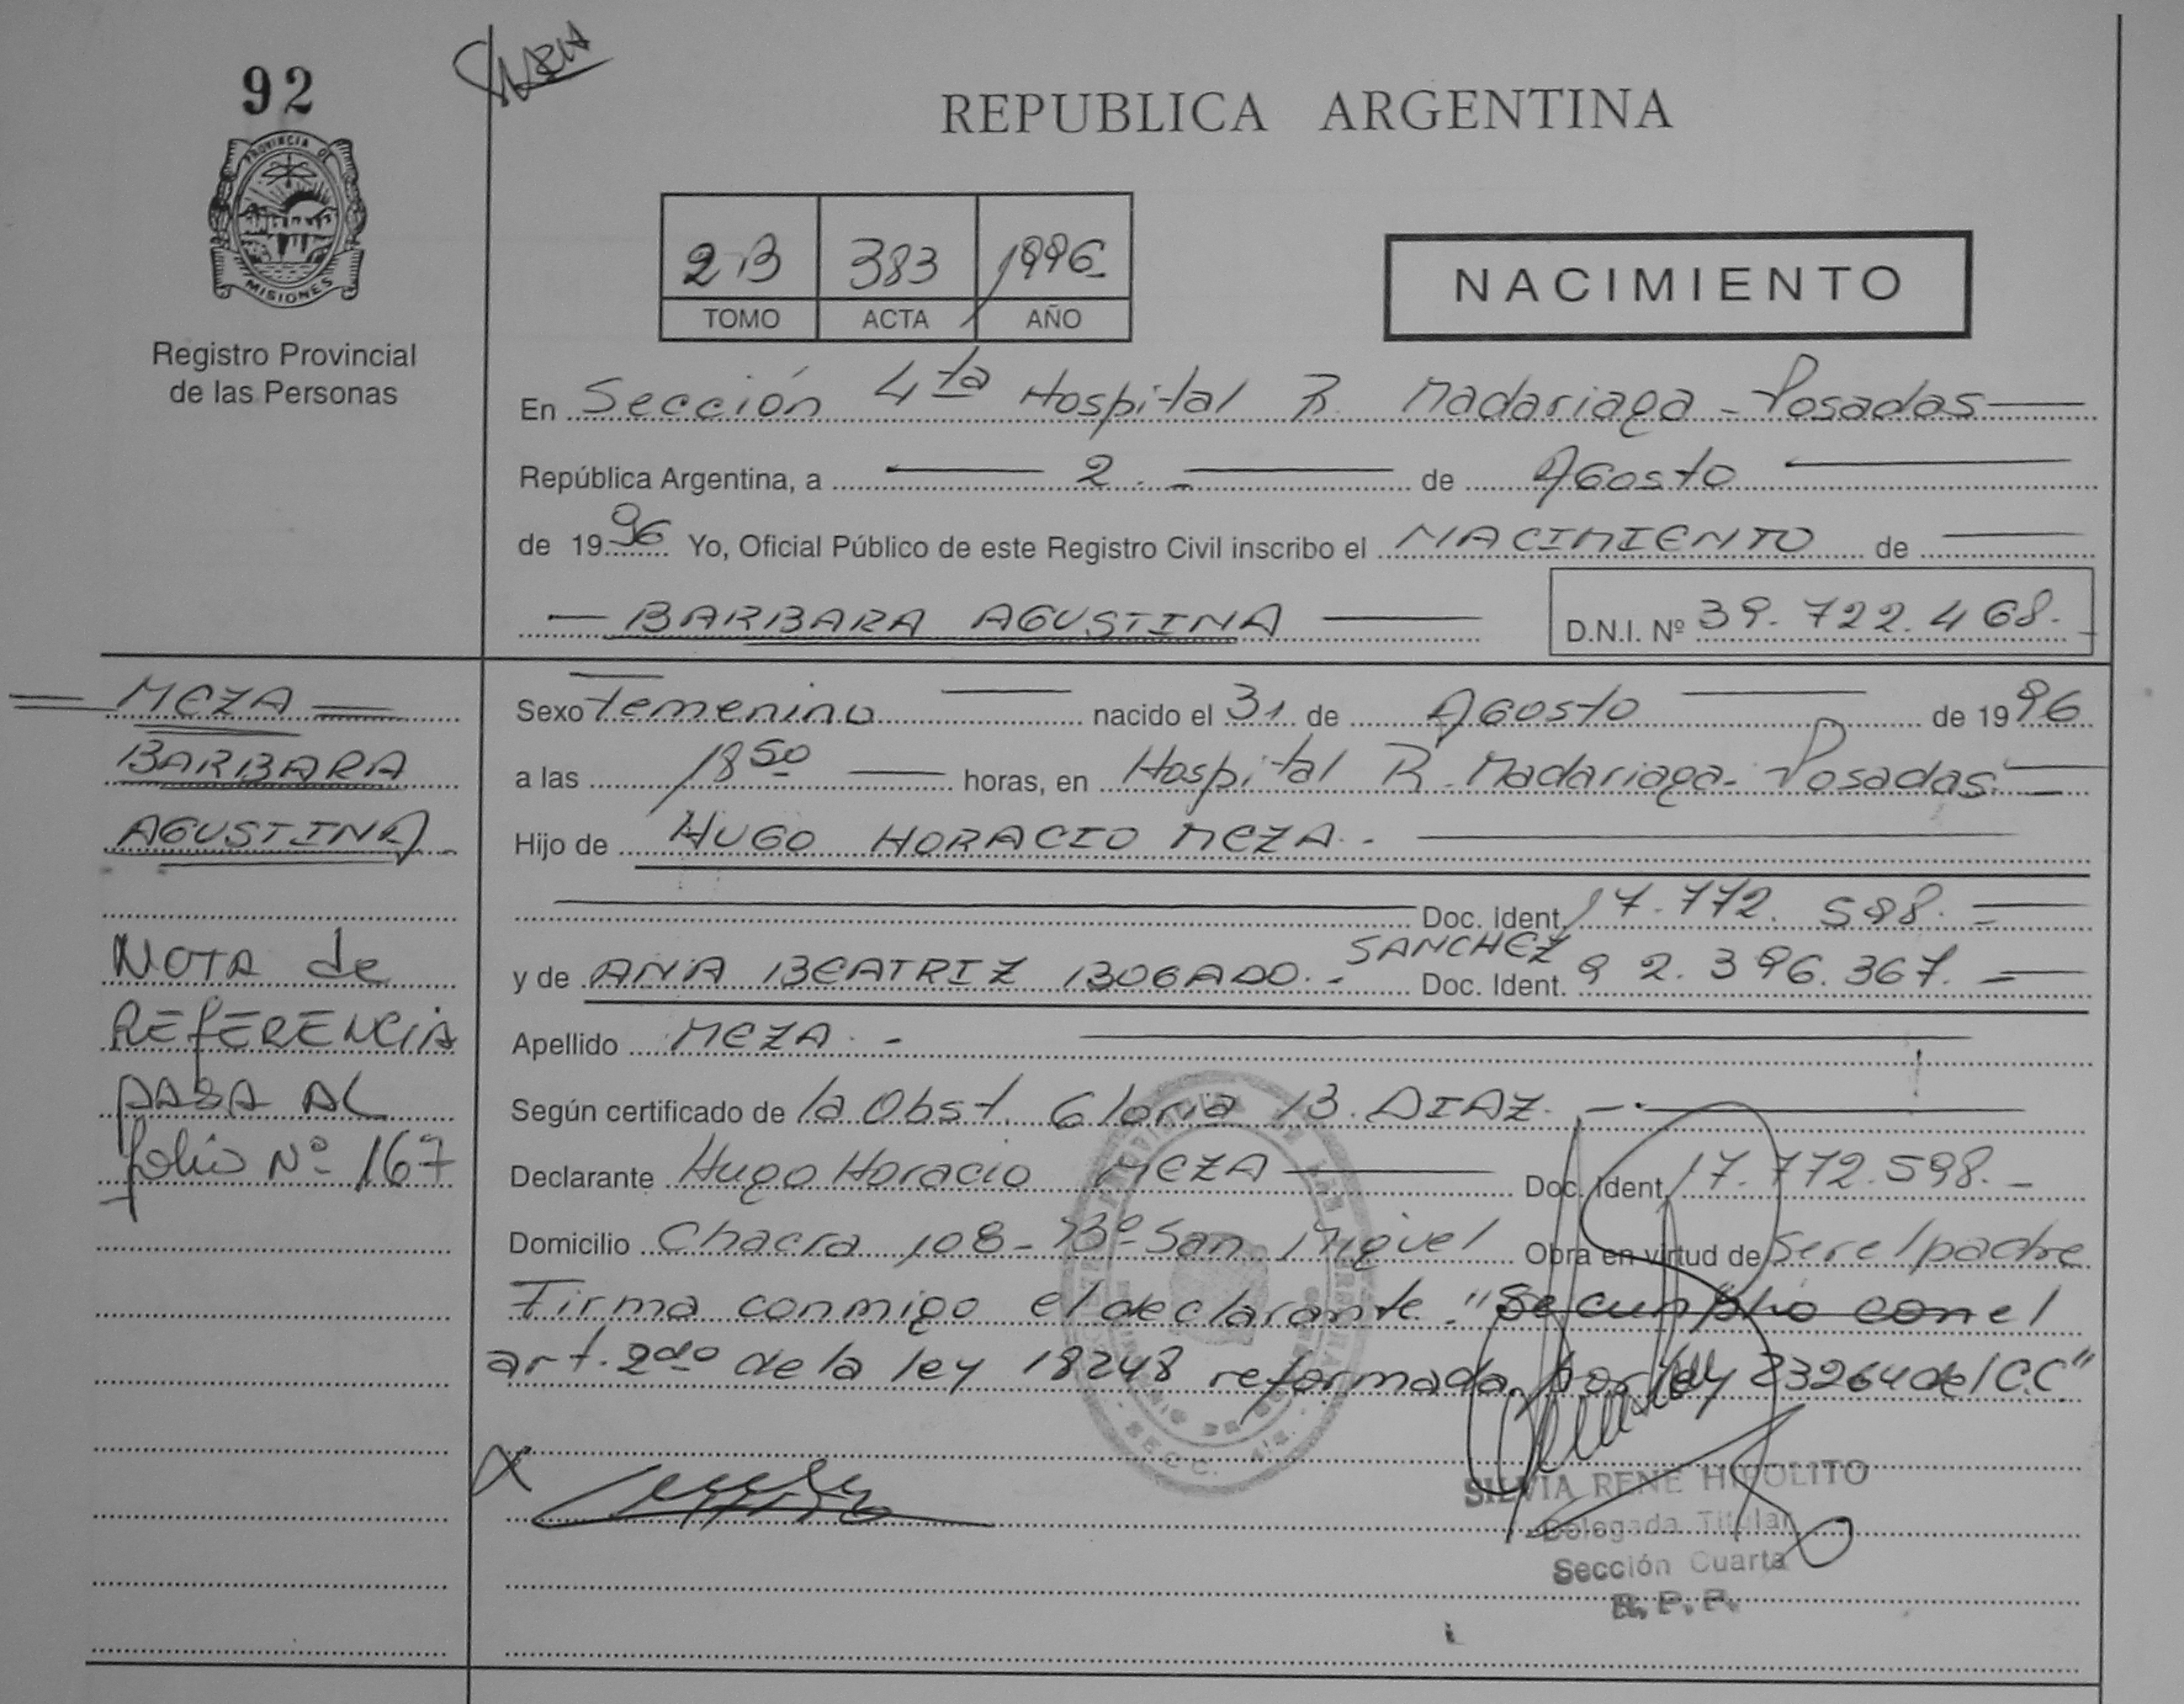 92
REPUBLICA ARGENTINA
PROVINCIA DE
MISIONES
Registro Provincial
de las Personas
2 B 383 1996
TOMO ACTA AÑO
NACIMIENTO
En Sección 4ta Hospital R. Madariaga - Posadas
República Argentina, a 2. - de Agosto
de 1996 Yo, Oficial Público de este Registro Civil inscribo el NACIMIENTO de
BARBARA AGUSTINA
D.N.I. Nº 39.722.468.
MEZA
BARBARA
AGUSTINA
NOTA de
REFERENCIA
PASA AL
folio Nº 167
Sexo Femenino nacido el 31 de Agosto de 1996
a las 18 50 horas, en Hospital R. Madariaga - Posadas
Hijo de HUGO HORACIO MEZA. -
Doc. Ident. 17.772.598. -
y de ANA BEATRIZ BOGADO. - SANCHEZ Doc. Ident. 92.396.367. -
Apellido MEZA. -
Según certificado de la Obst. Gloria B. DIAZ. -
Declarante Hugo Horacio MEZA Doc. Ident. 17.772.598. -
Domicilio Chacra 108 - Bº San Miguel Obra en virtud de ser el padre
Firma conmigo el declarante. "Se cumplio con el
art. 2do de la ley 18248 reformada por ley 23264 del C.C"
SILVIA RENE HIPOLITO
Delegada Titular
Sección Cuarta
R. P. P.